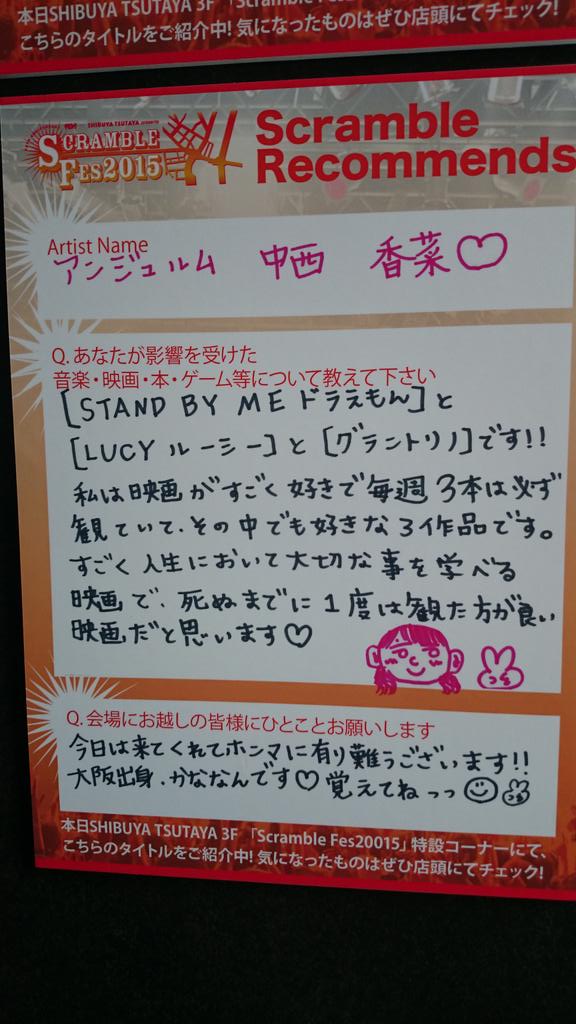 本日SHIBUYA TSUTAYA 3F 「Scramble Fes
こちらのタイトルをご紹介中! 気になったものはぜひ店頭にてチェック!
SHIBUYA TSUTAYA
SCRAMBLE
FES2015
Scramble
Recommends
Artist Name
アンジュルム 中西 香菜♡
Q. あなたが影響を受けた
音楽・映画・本・ゲーム等について教えて下さい
[STAND BY ME ドラえもん]と
[LUCY ルーシー]と[グラントリノ]です!!
私は映画がすごく好きで毎週3本は必ず
観ていて、その中でも好きな3作品です。
すごく人生において大切な事を学べる
映画で、死ぬまでに1度は観た方が良い
映画だと思います♡
Q. 会場にお越しの皆様にひとことお願いします
今日は来てくれてホンマに有り難うございます!!
大阪出身、かななんです♡ 覚えてねっっ
本日SHIBUYA TSUTAYA 3F 「Scramble Fes20015」特設コーナーにて、
こちらのタイトルをご紹介中! 気になったものはぜひ店頭にてチェック!